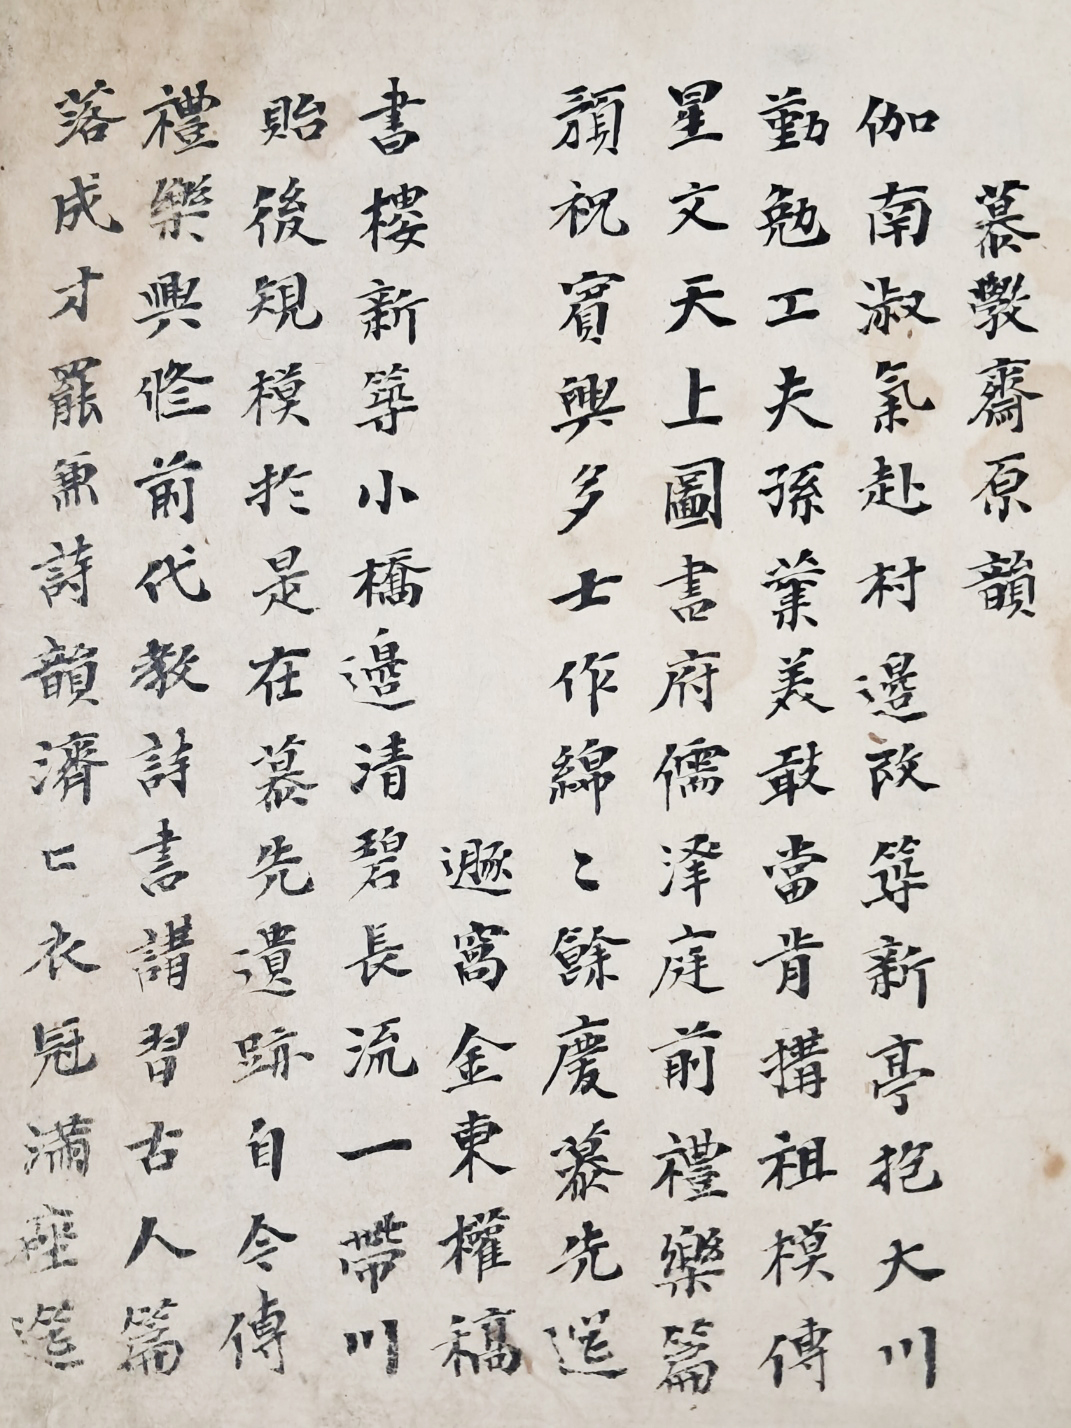 慕斅齋原韻
伽南淑氣赴村邊改築新亭抱大川
勤勉工夫孫業美敢當肯搆祖模傳
星文天上圖書府儒澤庭前禮樂篇
預祝賓興多士作綿〻餘慶慕先選
遯窩金東權稿
書樓新築小橋邊清碧長流一帶川
貽後規模於是在慕先遺跡自今傳
禮樂興修前代教詩書講習古人篇
落成才罷兼詩韻濟〻衣冠滿座選